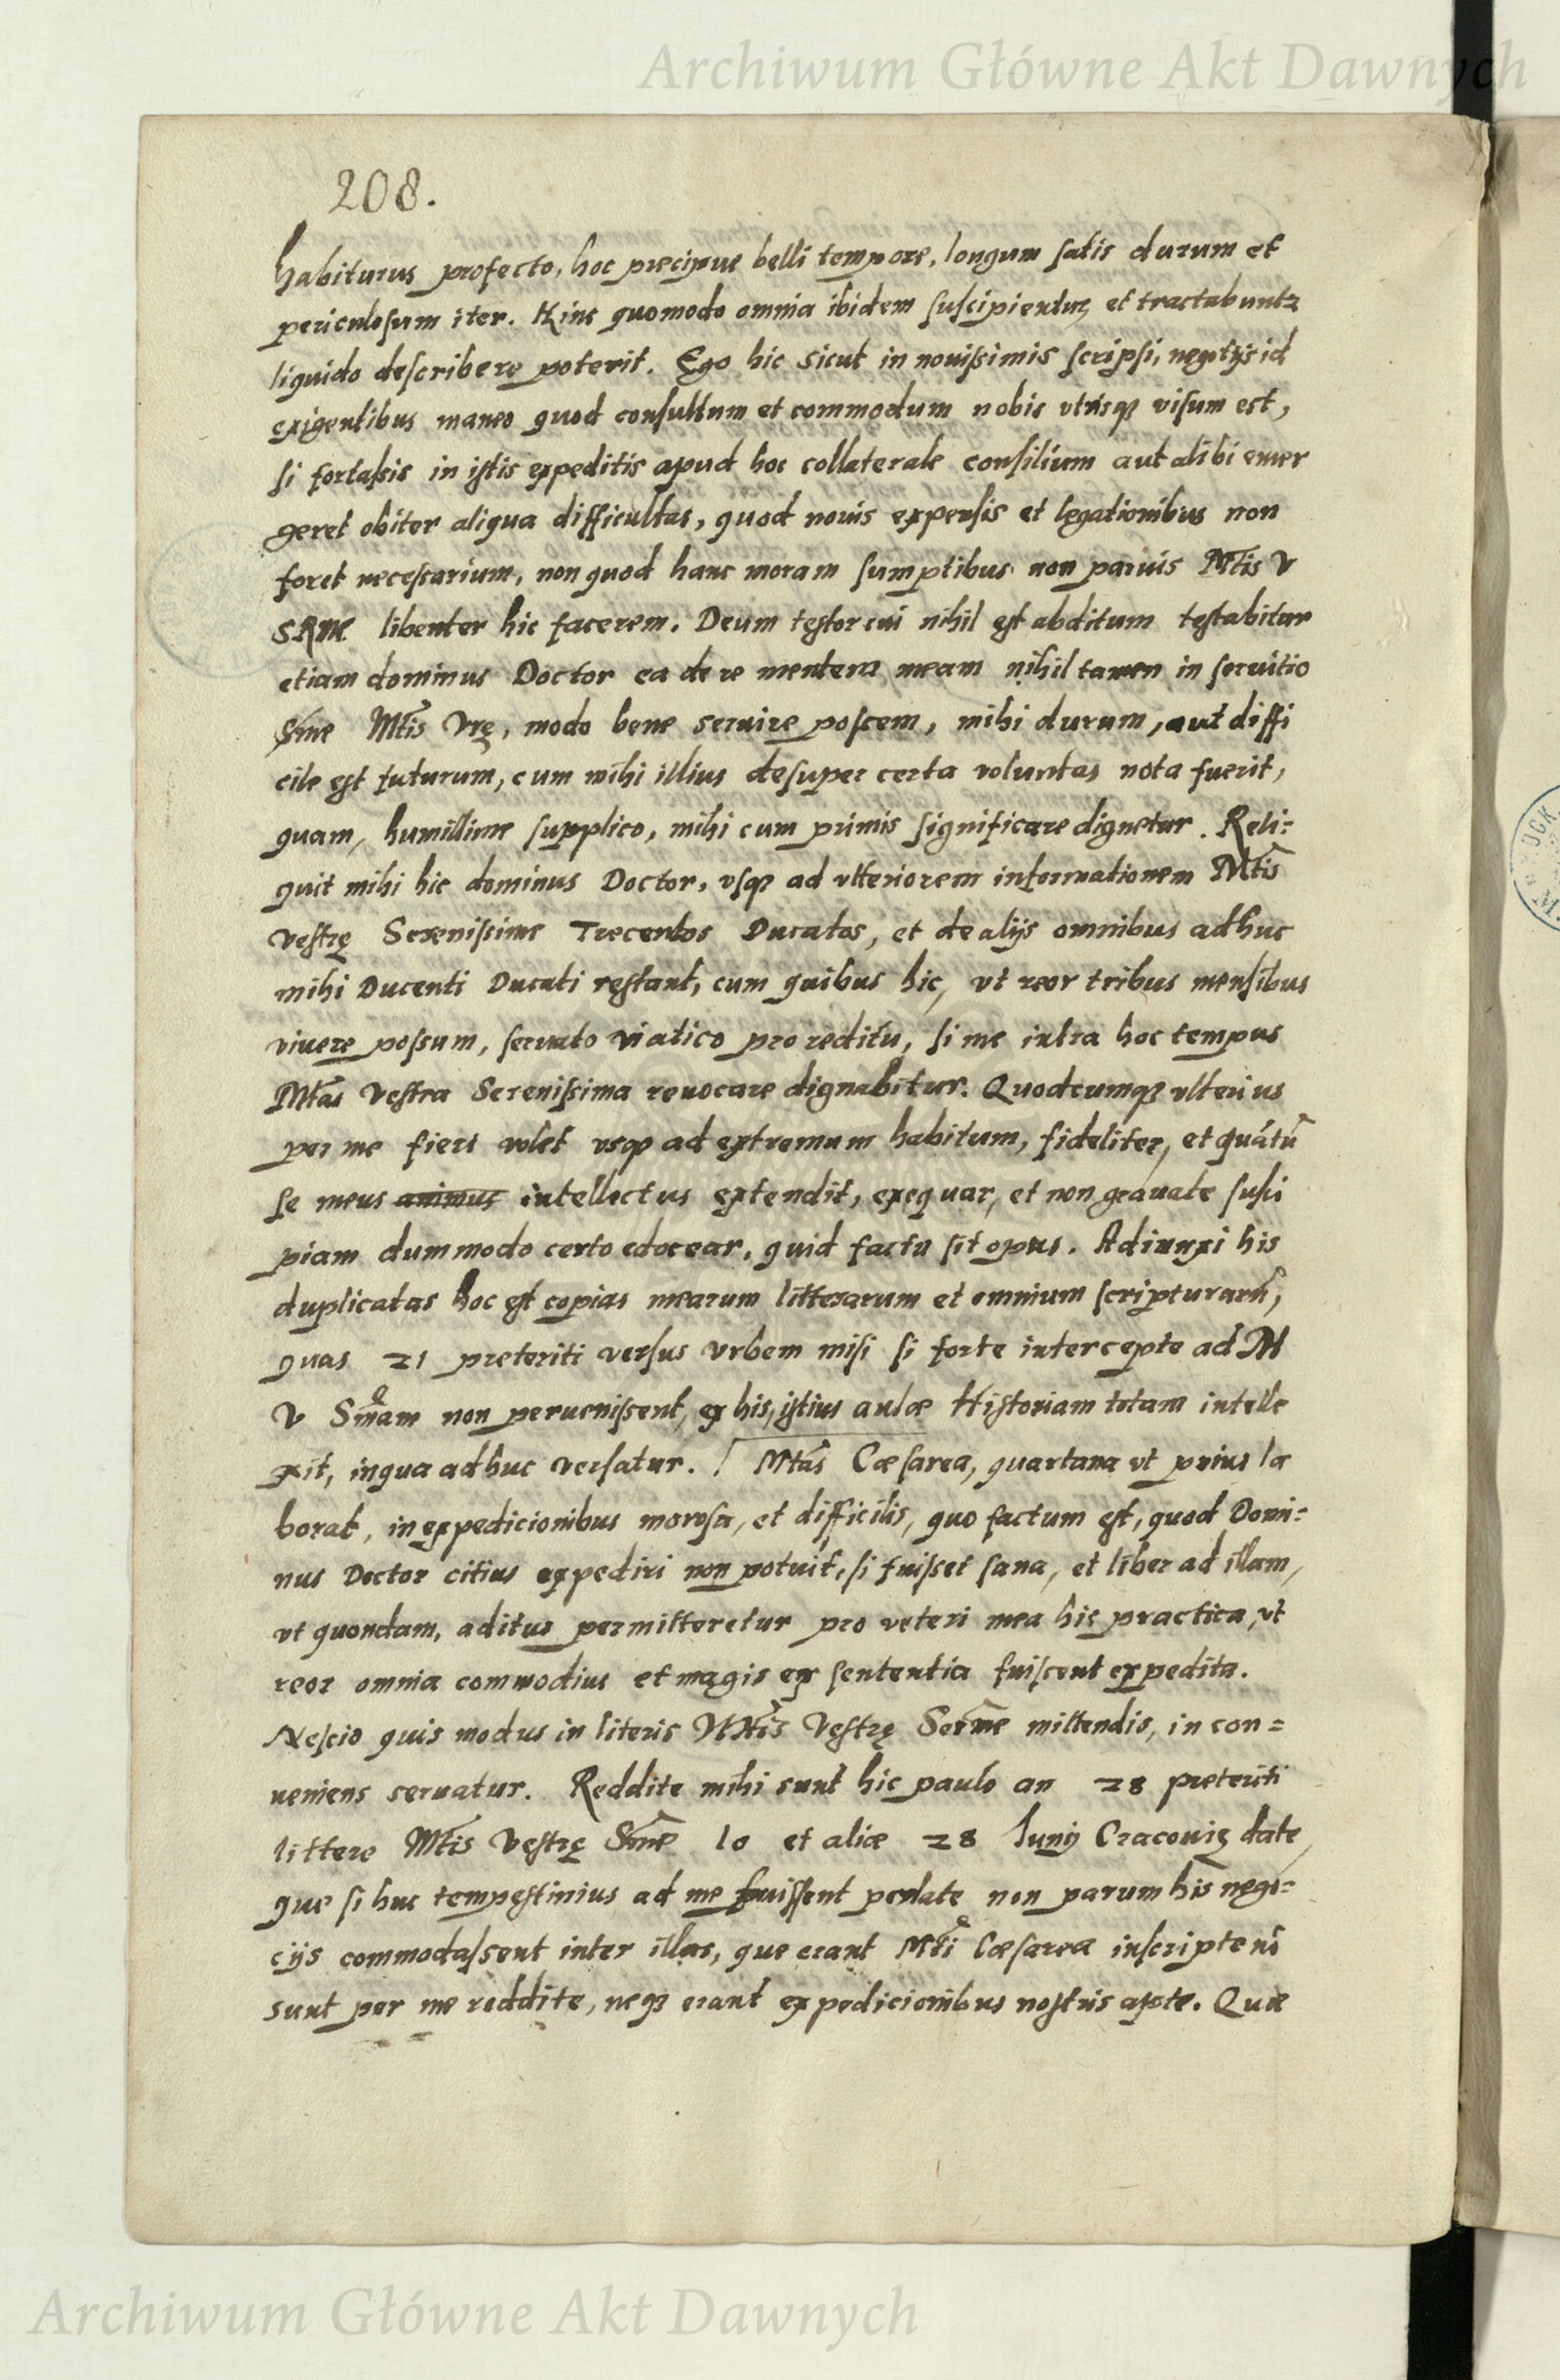 Archiwum Główne Akt Dawnych
208.
habiturus profecto, hoc precipue belli tempore, longum satis durum et
periculosum iter. Hinc quomodo omnia ibidem suscipientur, et tractabuntr
liquido describere poterit. Ego hic sicut in nouissimis scripsi, negotijs id
exigentibus maneo quod consultum et commodum nobis vtrisq visum est,
si fortassis in istis expeditis apud hoc collaterale consilium aut alibi emer
geret obiter aliqua difficultas, quod nouis expensis et legationibus non
foret necessarium, non quod hanc moram sumptibus non paruis Mtis V
SRme libenter hic facerem. Deum testor cui nihil est abditum testabitur
etiam dominus Doctor ea de re mentem meam nihil tamen in seruitio
Sme Mtis Vrę, modo bene seruire possem, mihi durum, aut diffi
cile est futurum, cum mihi illius desuper certa voluntas nota fuerit,
quam, humillime supplico, mihi cum primis significare dignetur. Reli=
quit mihi hic dominus Doctor, vsq ad vlteriorem informationem Mtis
vestrę Serenissime Trecentos Ducatos, et de alijs omnibus adhuc
mihi Ducenti Ducati restant, cum quibus hic, vt reor tribus mensibus
viuere possum, seruato viatico pro reditu, si me intra hoc tempus
Mtas Vestra Serenissima reuocare dignabitur. Quodcumq vlterius
per me fieri volet vsq ad extremum habitum, fideliter, et quãtũ
se meus animus intellectus extendit, exequar, et non grauate susci
piam dummodo certo edocear, quid factu sit opus. Adiunxi his
duplicatas hoc est copias mearum litterarum et omnium scripturarũ,
quas 21 preteriti versus vrbem misi si forte intercepte ad M
V Smam non peruenissent, ex his, istius aulæ Historiam totam intelle
xit, in qua adhuc versatur. Mtas Cæsarea, quartana vt prius la
borat, in expedicionibus morosa, et difficilis, quo factum est, quod Domi=
nus Doctor citius expediri non potuit, si fuisset sana, et liber ad illam,
vt quondam, aditus permitteretur pro veteri mea hic practica, vt
reor omnia commodius et magis ex sententia fuissent expedita.
Nescio quis modus in literis Mtis Vestrę Serme mittendis, in con=
ueniens seruatur. Reddite mihi sunt hic paulo an 28 preteriti
littere Mtis Vestrę Sme 10 et aliæ 28 Iunij Cracouię date,
que si huc tempestiuius ad me fuissent perlate non parum his nego=
cijs commodassent inter illas, que erant Mti Cæsarea inscripte nõ
sunt per me reddite, neq erant expedicionibus nostris apte. Quæ
Archiwum Główne Akt Dawnych